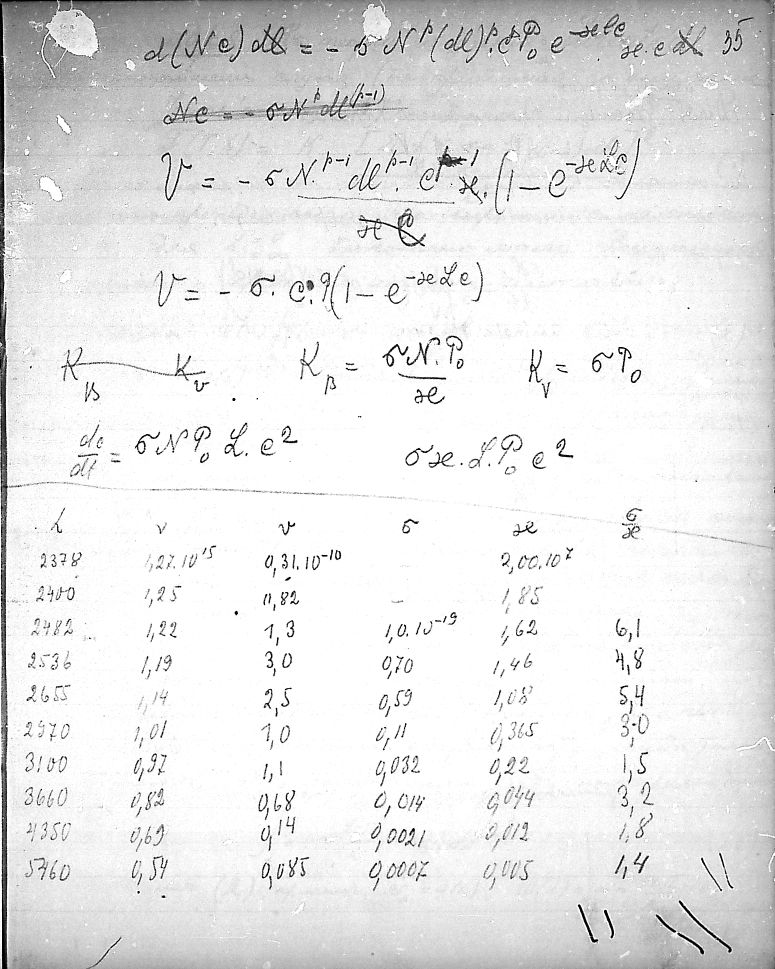 d(Nc) dl = - σ N^p (dl)^p · c^p P₀ e^{-ϰlc} ϰ·c dl 35
Nc = - σ N^p dl^{(p-1)}
V = - σ N^{p-1} dl^{p-1} · c^{p-1} ϰ · (1 - e^{-ϰLc})
ϰ
V = - σ · c · q (1 - e^{-ϰLc})
K_β K_ν K_β = σN·P₀ / ϰ K_ν = σP₀
dc/dt = σ N P₀ L · c² σϰ · L · P₀ c²
λ ν v σ ϰ σ/ϰ
2378 1,27·10¹⁵ 0,31·10⁻¹⁰ - 2,00·10⁷
2400 1,25 0,82 - 1,85
2482 1,22 1,3 1,0·10⁻¹⁹ 1,62 6,1
2536 1,19 3,0 0,70 1,46 4,8
2655 1,14 2,5 0,59 1,08 5,4
2970 1,01 1,0 0,11 0,365 3,0
3100 0,97 1,1 0,032 0,22 1,5
3660 0,82 0,68 0,014 0,044 3,2
4350 0,69 0,14 0,0021 0,012 1,8
5460 0,54 0,085 0,0007 0,005 1,4